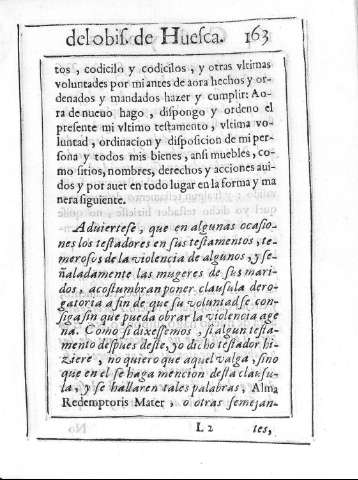 del obis. de Huesca. 163
tos, codicilo y codicilos, y otras vltimas
voluntades por mi antes de aora hechos y or-
denados y mandados hazer y cumplir: Ao-
ra de nueuo hago, dispongo y ordeno el
presente mi vltimo testamento, vltima vo-
luntad, ordinacion y disposicion de mi per-
sona y todos mis bienes, ansi muebles, co-
mo sitios, nombres, derechos y acciones aui-
dos y por auer en todo lugar en la forma y ma
nera siguiente.
Aduiertese, que en algunas ocasio-
nes los testadores en sus testamentos, te-
merosos de la violencia de algunos, y se-
ñaladamente las mugeres de sus mari-
dos, acostumbran poner clausula dero-
gatoria a fin de que su voluntad se con-
siga sin que pueda obrar la violencia age
na. Como si dixessemos, si algun testa-
mento despues deste, yo dicho testador hi-
ziere, no quiero que aquel valga, sino
que en el se haga mencion desta clausu-
la, y se hallaren tales palabras, Alma
Redemptoris Mater, o otras semejan-
L 2 tes,